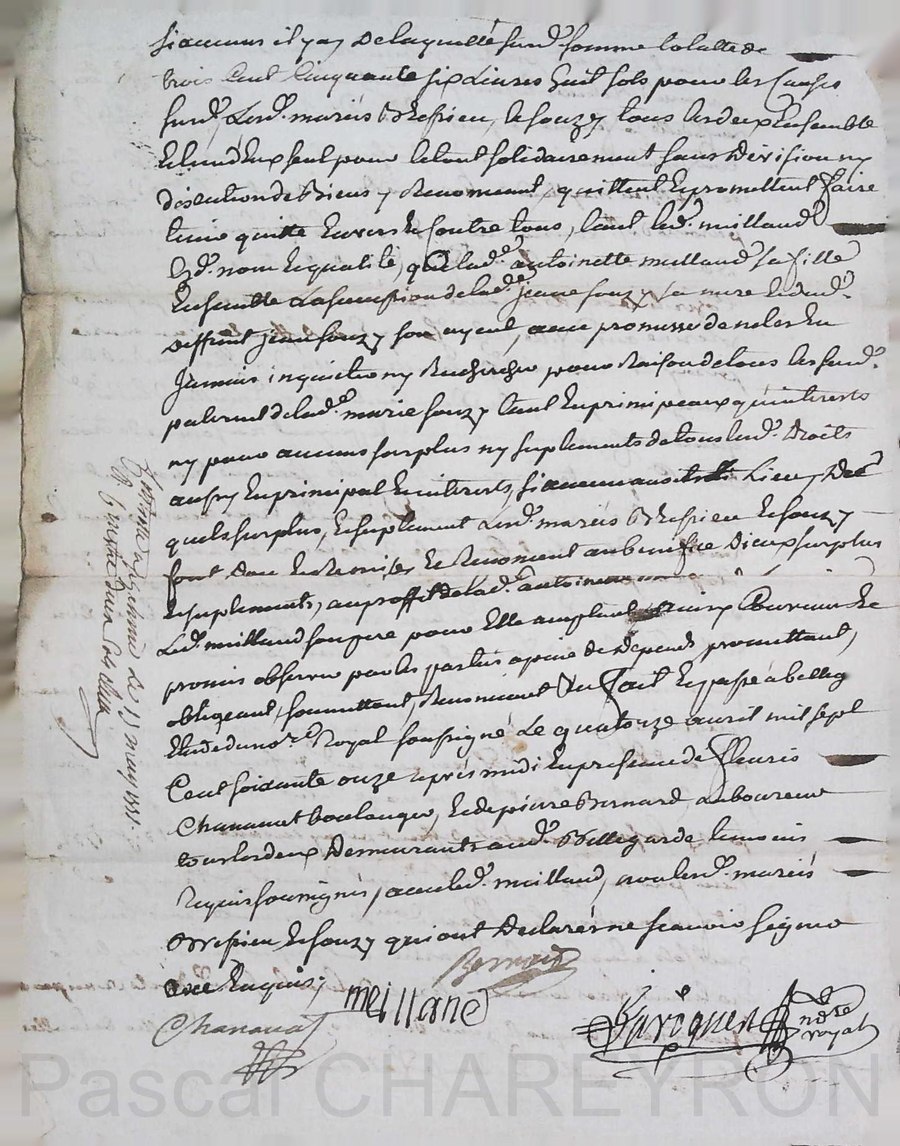 si aucuns il y a, de laquelle surd. somme totalle de
trois cent cinquante six livres huit sols pour les causes
surd. lesd. mariés & Fouzy tous les deux ensemble
et l'un d'eux seul pour le tout solidairement sans division ny
discution de biens y renoncent, quittent et promettent faire
tenir quitte envers et contre tous, tant led. meilland
aud. nom et qualité, que lad.e antoinette meilland sa fille
ensuitte la succession de lad.e jeane fouzy sa mere et dud.
deffunt jean fouzy son ayeul, avec promesse de ne les en
jamais inquietter ny rechercher pour raison de tous les surd.
paternel de lad.e marie fouzy tant en principeaux qu'interets
ny pour aucuns surplus ny suplements de tous lesd. droits
aussy en principal et interets, si aucuns avoit lieu, des
quels surplus, et suplement lesd. mariés et fouzy
font don et remises et renoncent au benefice d'iceux surplus
et suplements, au proffit de lad.e antoinette
led. meilland son pere pour elle
promis observer par les parties a peine de depends promettant,
obligeant, soumettant, renonçant &c fait et passé a belleg
etude du no.re Royal soussigné le quatorze avril mil sept
Cent soixante onze après midi en presence de fleuris
Chanavat boulanger, et de pierre Bernard laboureur
tous les deux demeurants aud. Bellegarde temoins
requis soussignés, avec led. meilland, non lesd. mariés
et fouzy qui ont declaré ne scavoir signer
de ce enquis;
Bernard
meilland
Chanavat
no.re royal
le 13 may 1771.
Pascal CHAREYRON